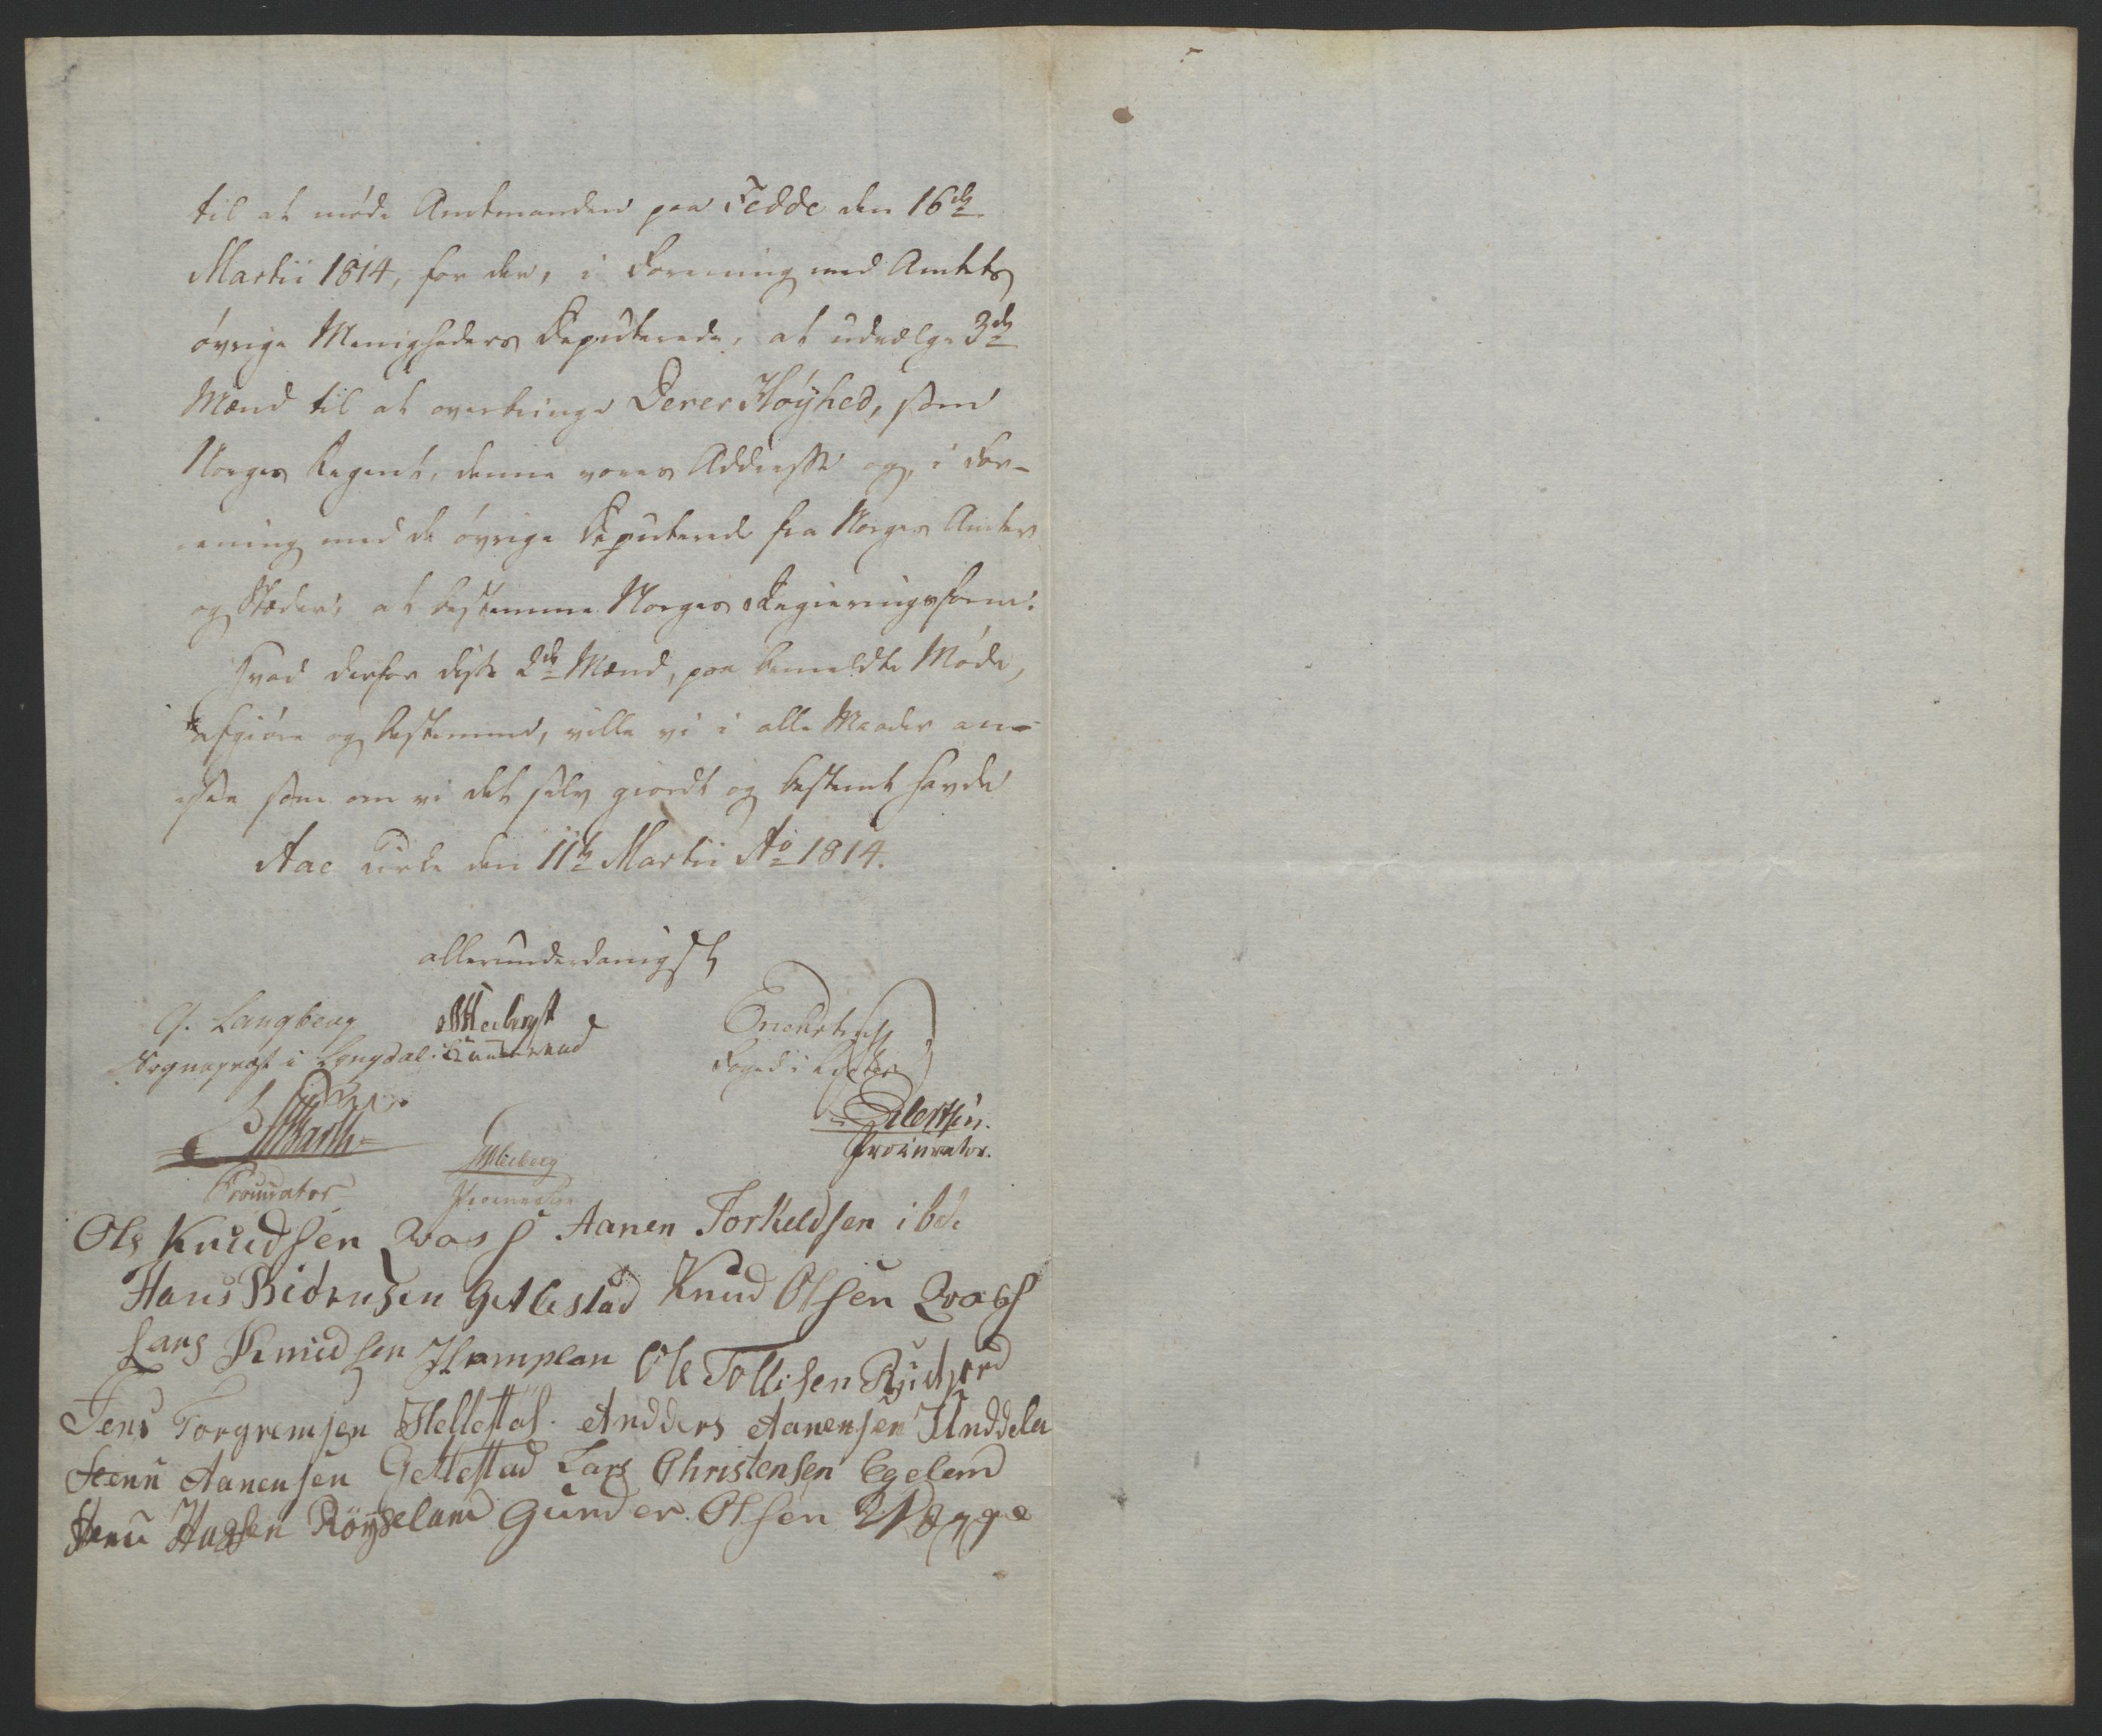 til at møde Amtmanden paa Fedde den 16de
Martii 1814, for der, i Forening med Amtets
øvrige Menigheders Deputerede, at udvælge 3de
Mænd til at overbringe Deres Høyhed, som
Norges Regent, denne vores Addresse og, i For-
ening med de øvrige Deputerede fra Norges Amter
og Stæder, at bestemme Norges Regieringsform:
Hvad derfor disse 2de Mænd, paa bemeldte Møde,
afgiøre og bestemme, ville vi i alle Maader an-
see som om vi det selv giordt og bestemt havde
Aae Kirke den 11te Martii Ao 1814.
allerunderdanigst
G. Langberg
Sognepræst i Lyngdal
Foged i Lister
Barth
Procurator
Procurator
Eilertsen.
Procurator.
Ole Knudsen Qvaas Aanen Torkeldsen ibd.
Hans Biørnsen Getlestad Knud Olsen Qvaas
Lars Knudsen Hamplan Ole Tollisen Rudjord
Jens Torgremsen Hellestøl. Andders Aanensen Unddeland
Stenn Aanensen Getlestad Lars Christensen Egeland
Stenn Aassen Røyseland Gunder Olsen Vegge